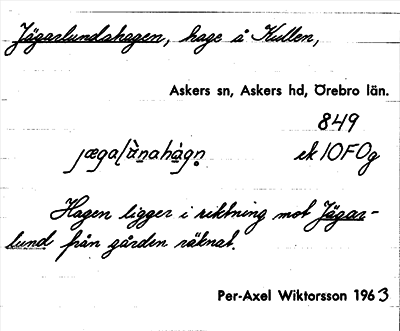 Jägarlundahagen, hage å Kullen,
Askers sn, Askers hd, Örebro län.
849
jægaḷùnahàgn̥ ek 10F0g
Hagen ligger i riktning mot Jägar-
lund från gården räknat.
Per-Axel Wiktorsson 1963